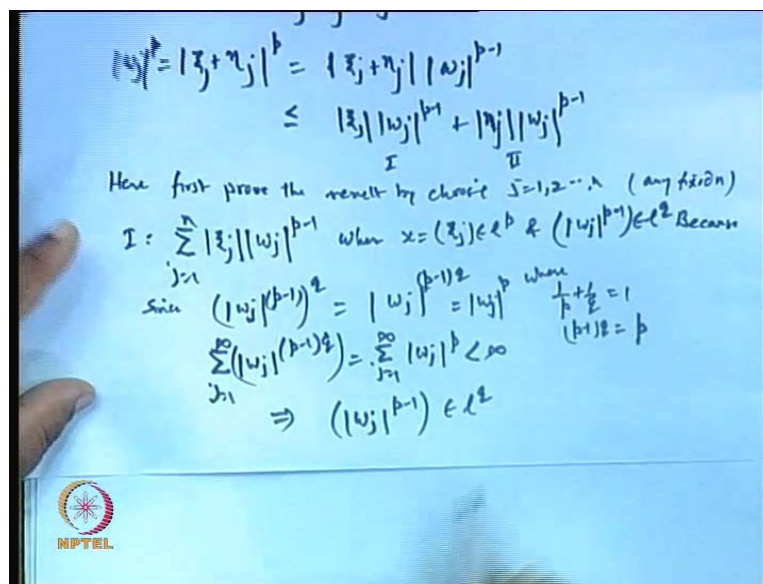 |wj|^p = |ξj + ηj|^p = |ξj + ηj| |wj|^{p-1}
≤ |ξj| |wj|^{p-1} + |ηj| |wj|^{p-1}
I II
Here first prove the result by choose j=1,2...n (any fixed n)
I : ∑_{j=1}^{n} |ξj| |wj|^{p-1} where x = (ξj) ∈ l^p & (|wj|^{p-1}) ∈ l^q Because
Since (|wj|^{(p-1)})^q = |wj|^{(p-1)q} = |wj|^p where 1/p + 1/q = 1
(p-1)q = p
∑_{j=1}^{∞} (|wj|^{(p-1)q}) = ∑_{j=1}^{∞} |wj|^p < ∞
⇒ (|wj|^{p-1}) ∈ l^q
NPTEL